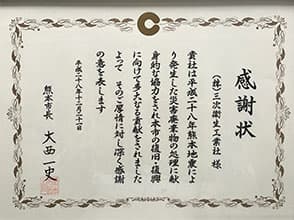 感謝状
(株)三次衛生工業社 様
貴社は平成二十八年熊本地震によ
り発生した災害廃棄物の処理に献
身的な協力をされ本市の復旧・復興
に向けて多大なる貢献をされました
よって そのご厚情に対し深く感謝
の意を表します
平成二十八年十二月二十一日
熊本市長 大西一史